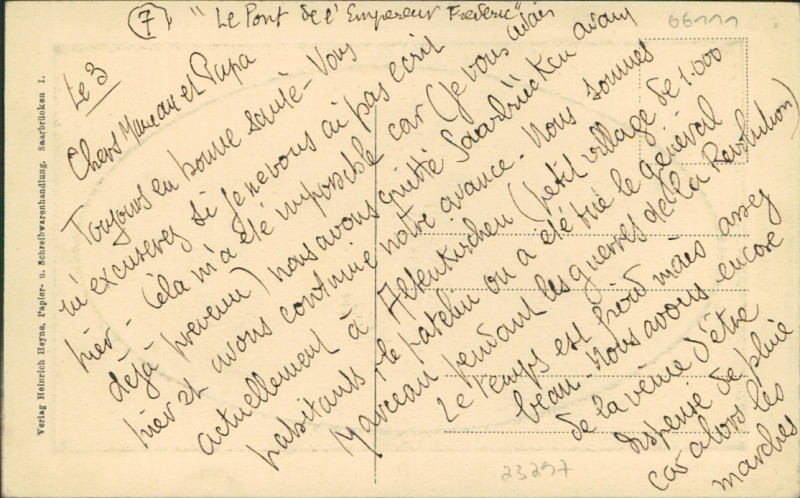 7 "Le Pont de l'Empereur Frederic"
66111
Le 3
Chers Maman et Papa
Toujours en bonne santé - Vous
m'excuserez si je ne vous ai pas ecrit
hier - Cela m'a été impossible car (je vous avais
déjà prevenu) nous avons quitté Saarbrücken avant
hier et avons continué notre avance. Nous sommes
actuellement à Altenkirchen (petit village de 1.000
habitants le patelin ou a été tué le général
Marceau pendant les guerres de la Revolution)
Le temps est froid mais assez
beau. Nous avons encore
de la veine d'être
dispensé de pluie
car alors les
marches
23297
Verlag Heinrich Heyne, Papier- u. Schreibwarenhandlung, Saarbrücken 1.